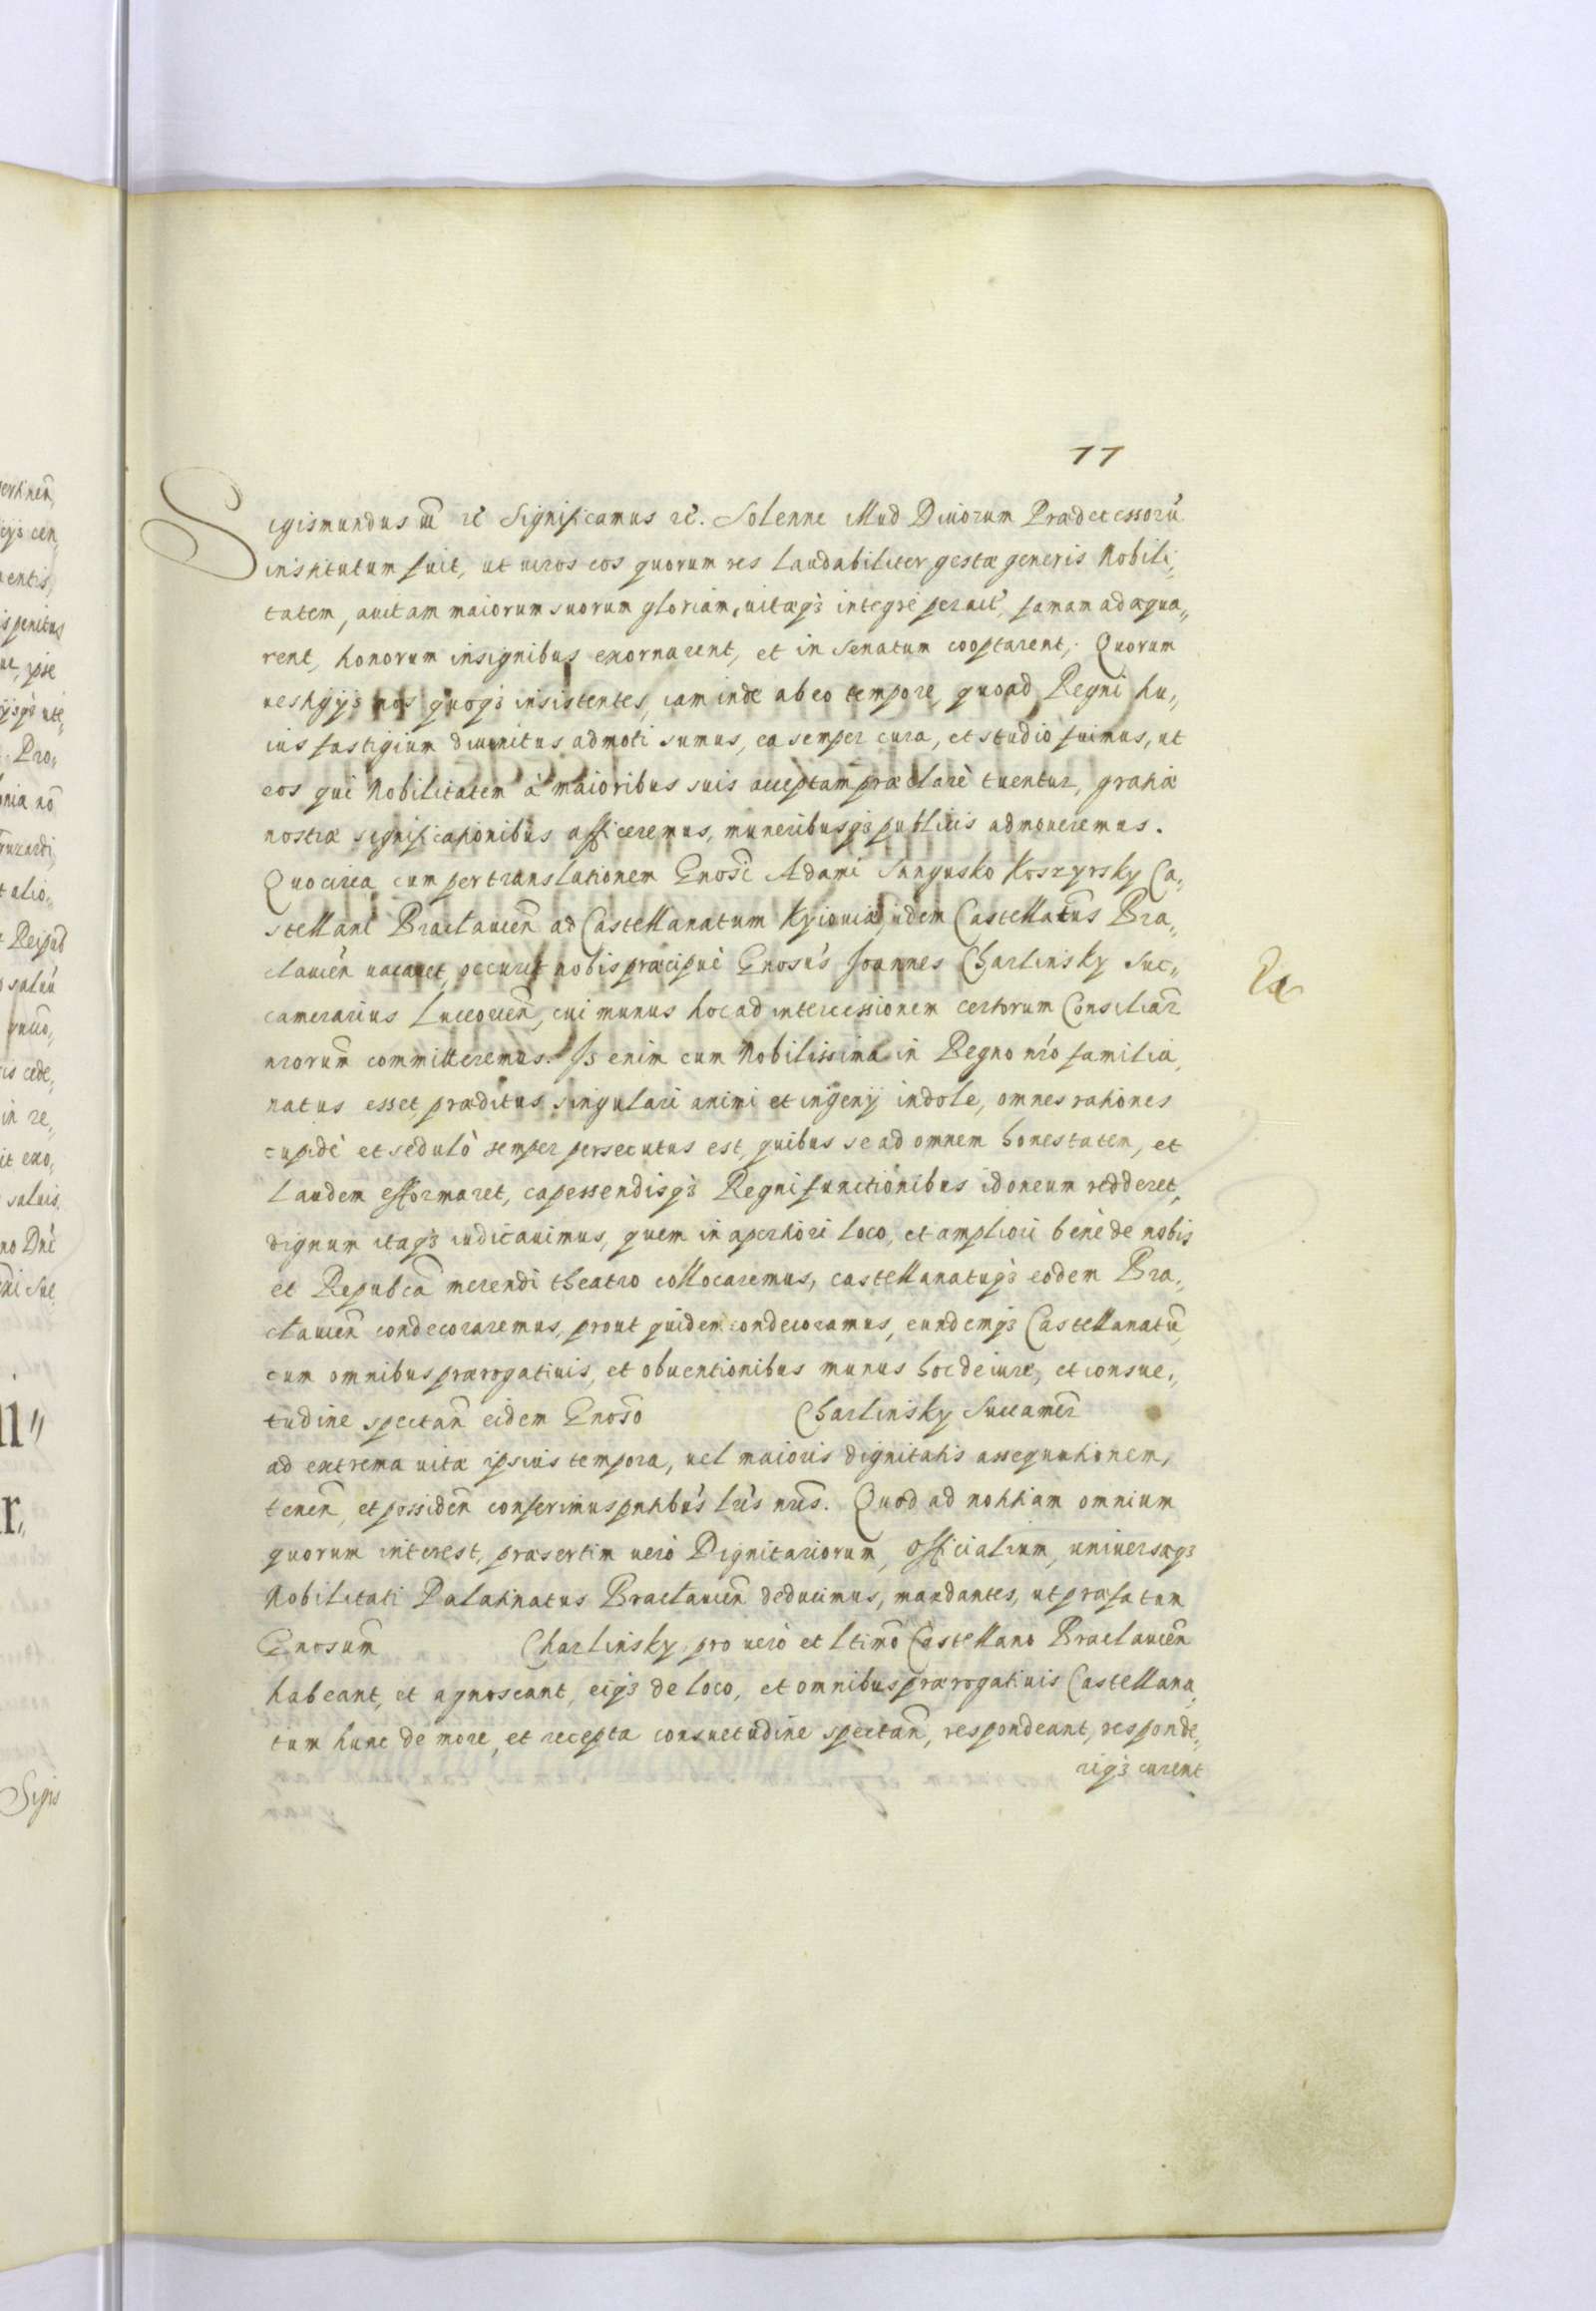 77
Sigismundus III etc Significamus etc. Solenne illud Diuorum Prædecessorũ
institutum fuit, ut uiros eos quorum res laudabiliter gestæ generis Nobili,,
tatem, auitam maiorum suorum gloriam, uitæq3 integrè peractæ, famam adæqua,,
rent, honorum insignibus exornarent, et in Senatum cooptarent, Quorum
uestigijs nos quoq3 insistentes, iam inde ab eo tempore, quo ad Regni hu,,
ius fastigium diuinitus admoti sumus, ea semper cura, et studio fuimus, ut
eos qui Nobilitatem à maioribus suis acceptam præclarè tuentur, gratiæ
nostræ significationibus afficeremus, muneribusq3 publicis admoueremus.
Quocirca cum per translationem Gnosi Adami Sangusko Koszyrsky Ca,,
stellani Braclauieñ ad Castellanatum Kyiouiæ, idem Castellatus Bra,,
clauieñ uacaret, occurit nobis præcipuè Gnosus Joannes Charlinsky Suc,,
camerarius Luceorieñ, cui munus hoc ad intercessionem certorum Consiliar̃
nrorum committeremus. Is enim cum Nobilissima in Regno nro familia,
natus esset, præditus singulari animi et ingenij indole, omnes rationes
cupidè et sedulò semper persecutus est, quibus se ad omnem honestatem, et
laudem efformaret, capessendisq3 Regni functionibus idoneum redderet,
dignum itaq3 iudicauimus, quem in apertiori loco, et ampliori benè de nobis
et Repubca merendi theatro collocaremus, castellanatuq3 eodem Bra,,
clauieñ condecoraremus, prout quidem condecoramus, eundemq3 Castellanatũ,
cum omnibus prærogatiuis, et obuentionibus munus hoc de iure, et consue,,
tudine spectañ eidem Gnoso Charlinsky Succamer̃
ad extrema uitæ ipsius tempora, uel maioris dignitatis assequutionem,
teneñ, et possideñ conferimus pntibus lris nris. Quod ad notitiam omnium
quorum interest, præsertim uerò Dignitariorum, Officialium, uniuersæq3
Nobilitati Palatinatus Braclauieñ deducimus, mandantes, ut præfatum
Gnosum Charlinsky, pro uero et ltimo Castellano Braclauieñ
habeant, et agnoscant, eiq3 de loco, et omnibus prærogatiuis Castellana,,
tum hunc de more, et recepta consuetudine spectañ, respondeant, responde,,
riq3 curent